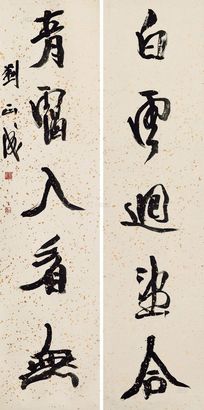 白雲迴望合
青靄入看無
劉正成